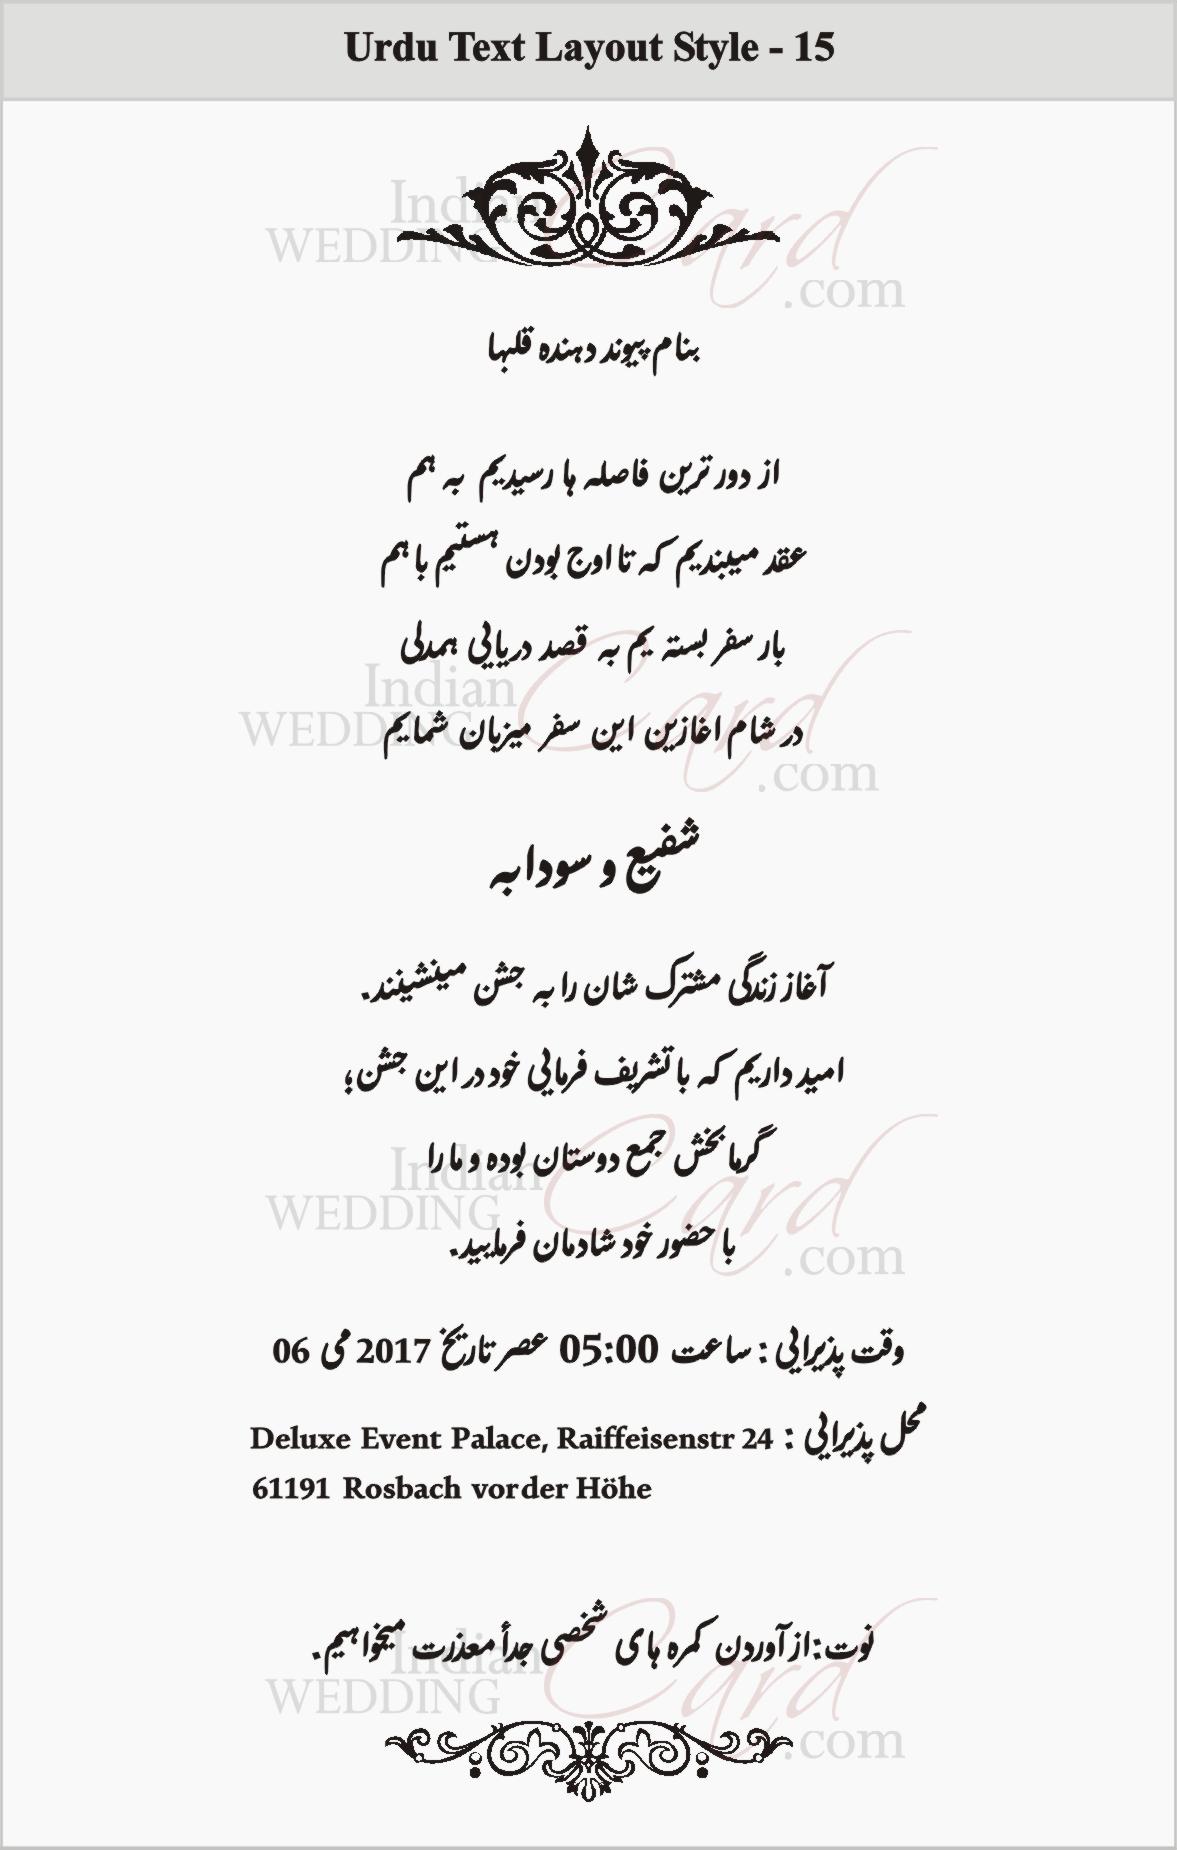 Urdu Text Layout Style - 15
Indian
WEDDING Card
.com
بنام پیوند دهنده قلبها
از دور ترین فاصله ها رسیدیم به هم
عقد میبندیم که تا اوج بودن هستیم با هم
بار سفر بسته یم به قصد دریایی همدلی
Indian
WEDDING Card
.com
در شام اغازین این سفر میزبان شمایم
شفیع و سودابه
آغاز زندگی مشترک شان را به جشن مینشینند.
امید داریم که با تشریف فرمایی خود در این جشن؛
گرما بخش جمع دوستان بوده و ما را
Indian
WEDDING Card
.com
با حضور خود شادمان فرمایید.
وقت پذیرایی : ساعت 05:00 عصر تاریخ 2017 می 06
محل پذیرایی : Deluxe Event Palace, Raiffeisenstr 24
61191 Rosbach vor der Höhe
نوت:از آوردن کمره های شخصی جدأ معذرت میخواهیم.
Indian
WEDDING Card
.com